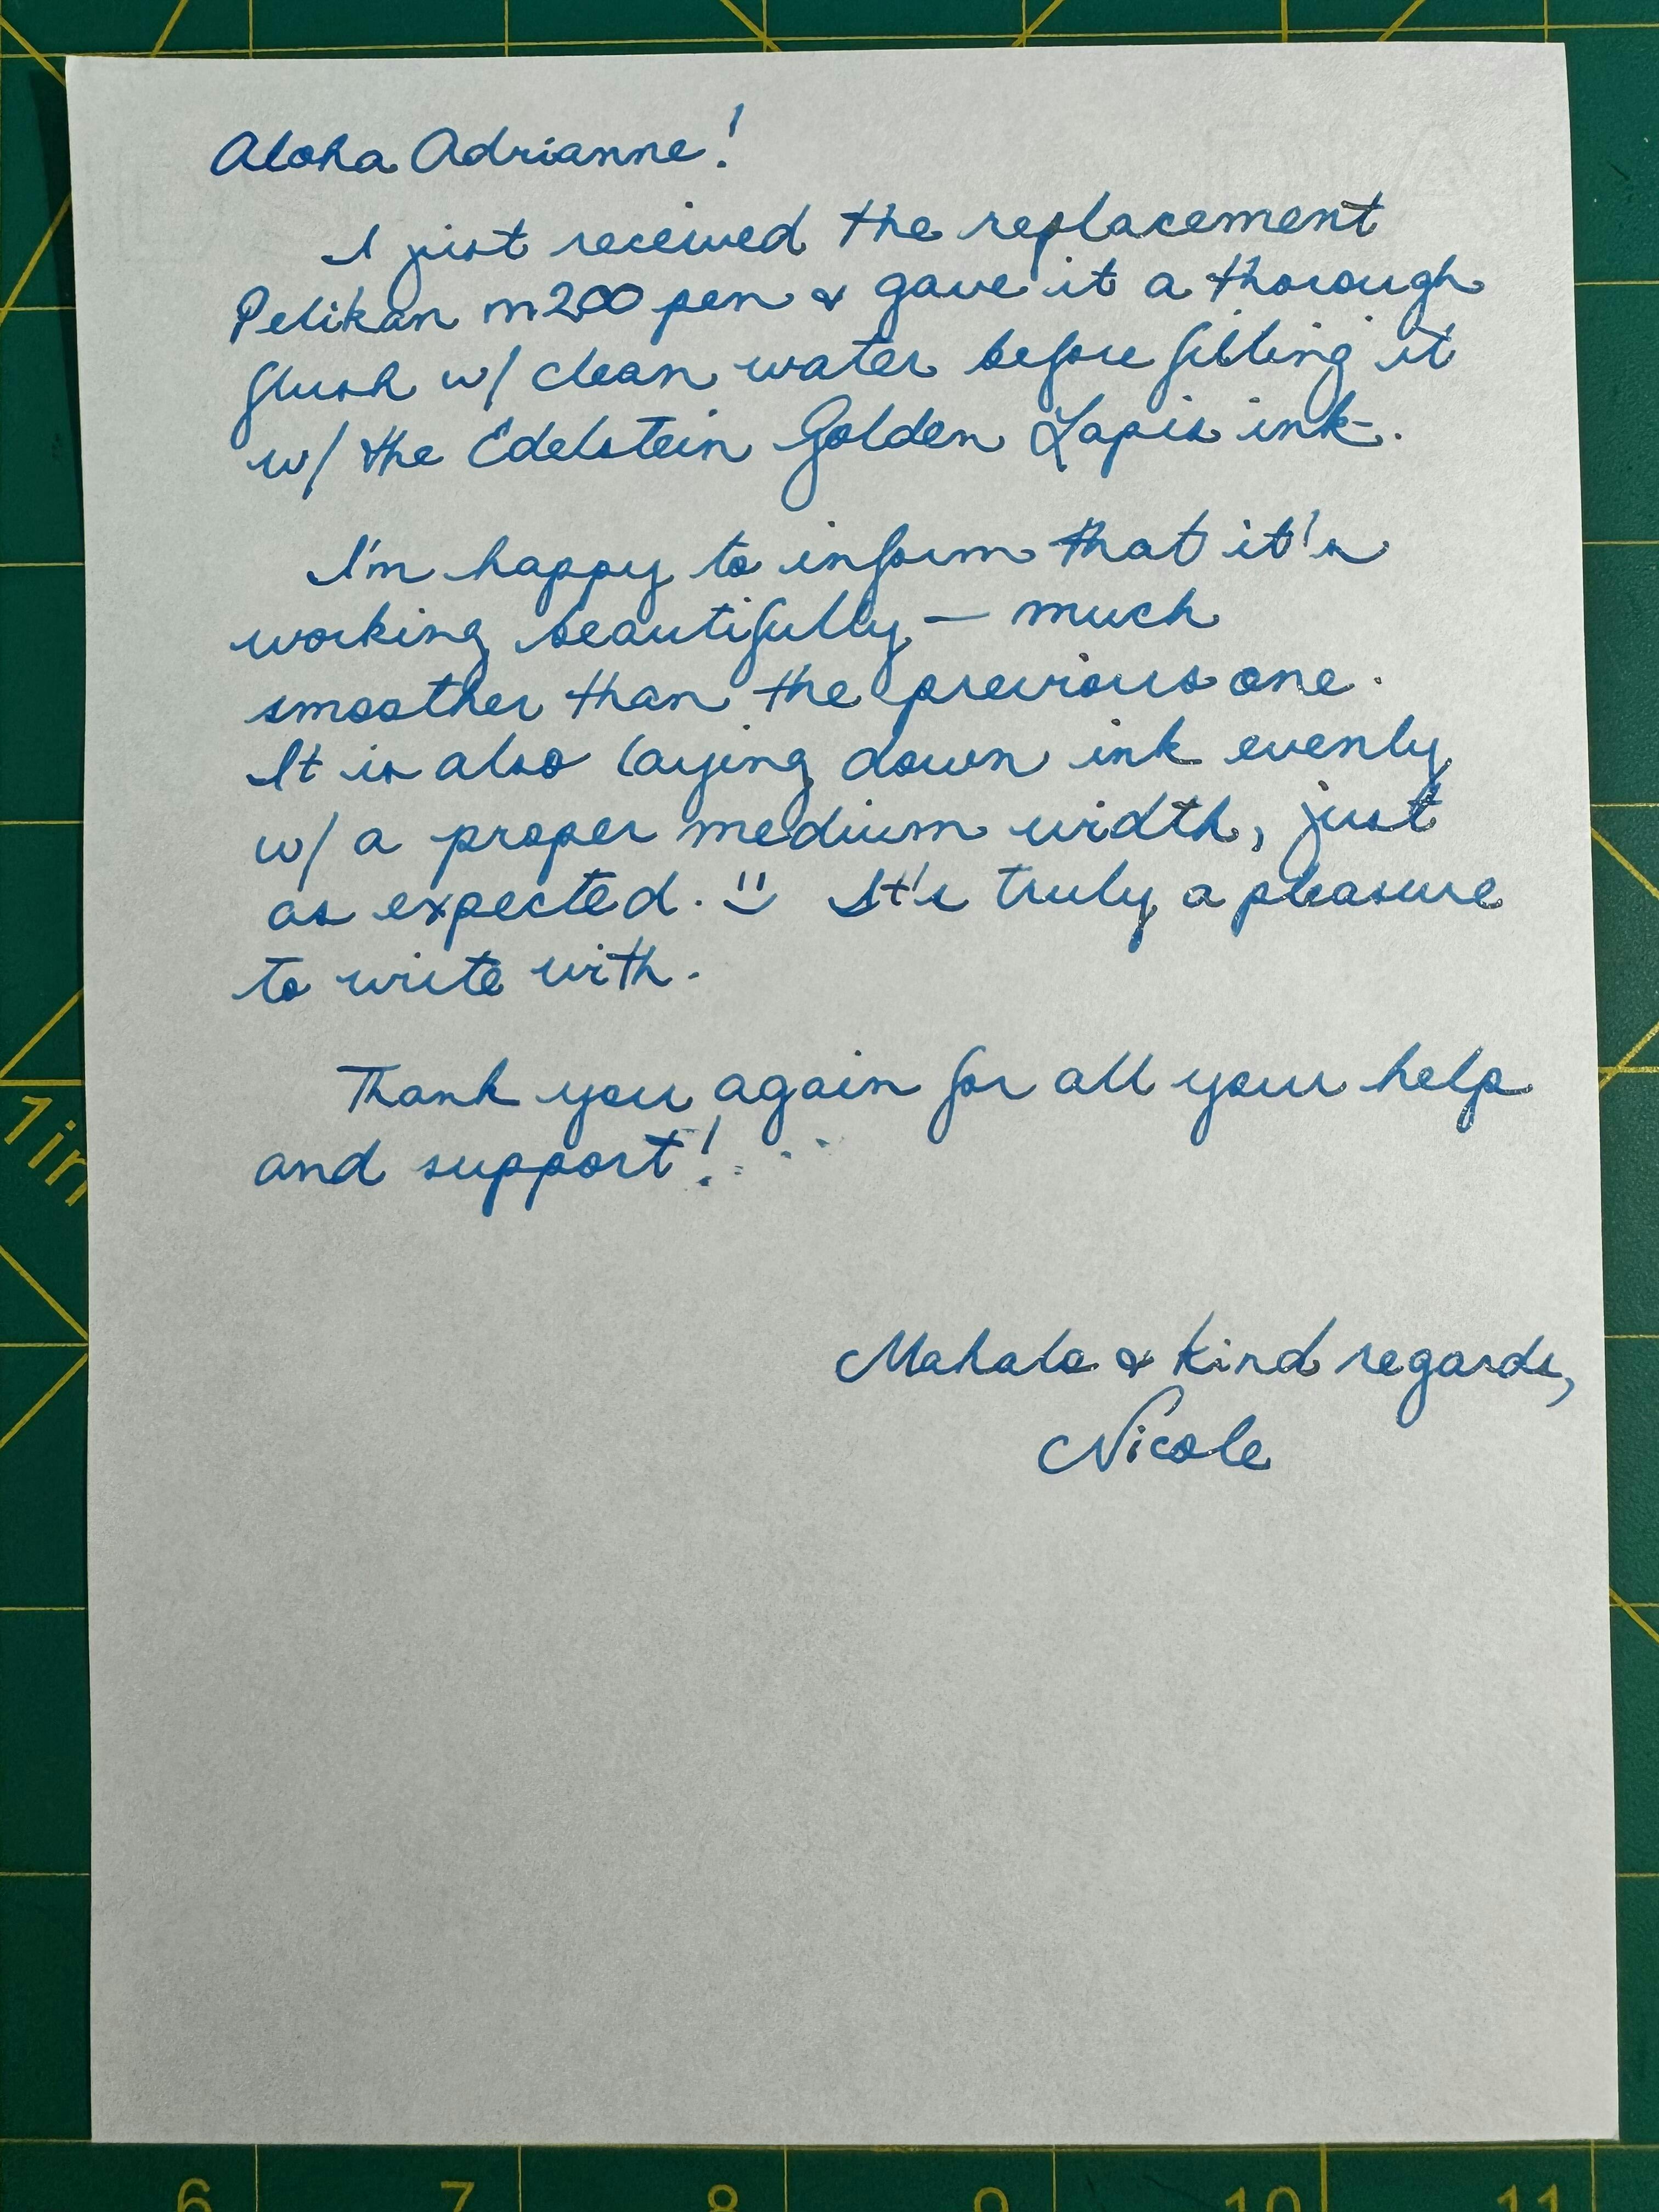 Aloha Adrianne!
I just received the replacement
Pelikan m200 pen & gave it a thorough
flush w/ clean water before filling it
w/ the Edelstein Golden Lapis ink.
I'm happy to inform that it's
working beautifully — much
smoother than the previous one.
It is also laying down ink evenly
w/ a proper medium width, just
as expected. :) It's truly a pleasure
to write with.
Thank you again for all your help
and support!
Mahalo & kind regards,
Nicole
1in
6 7 8 9 10 11